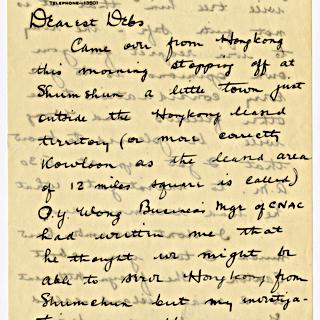 TELEPHONE-13501
Dearest Debs
Came over from Hongkong
this morning stopping off at
Shumshun a little town just
outside the Hongkong leased
territory (or more correctly
Kowloon as the leased area
of 12 miles square is called)
P.Y. Wong Business Mgr of CNAC
had written me that
he thought we might be
able to serve Hongkong from
Shumchun but my investiga-